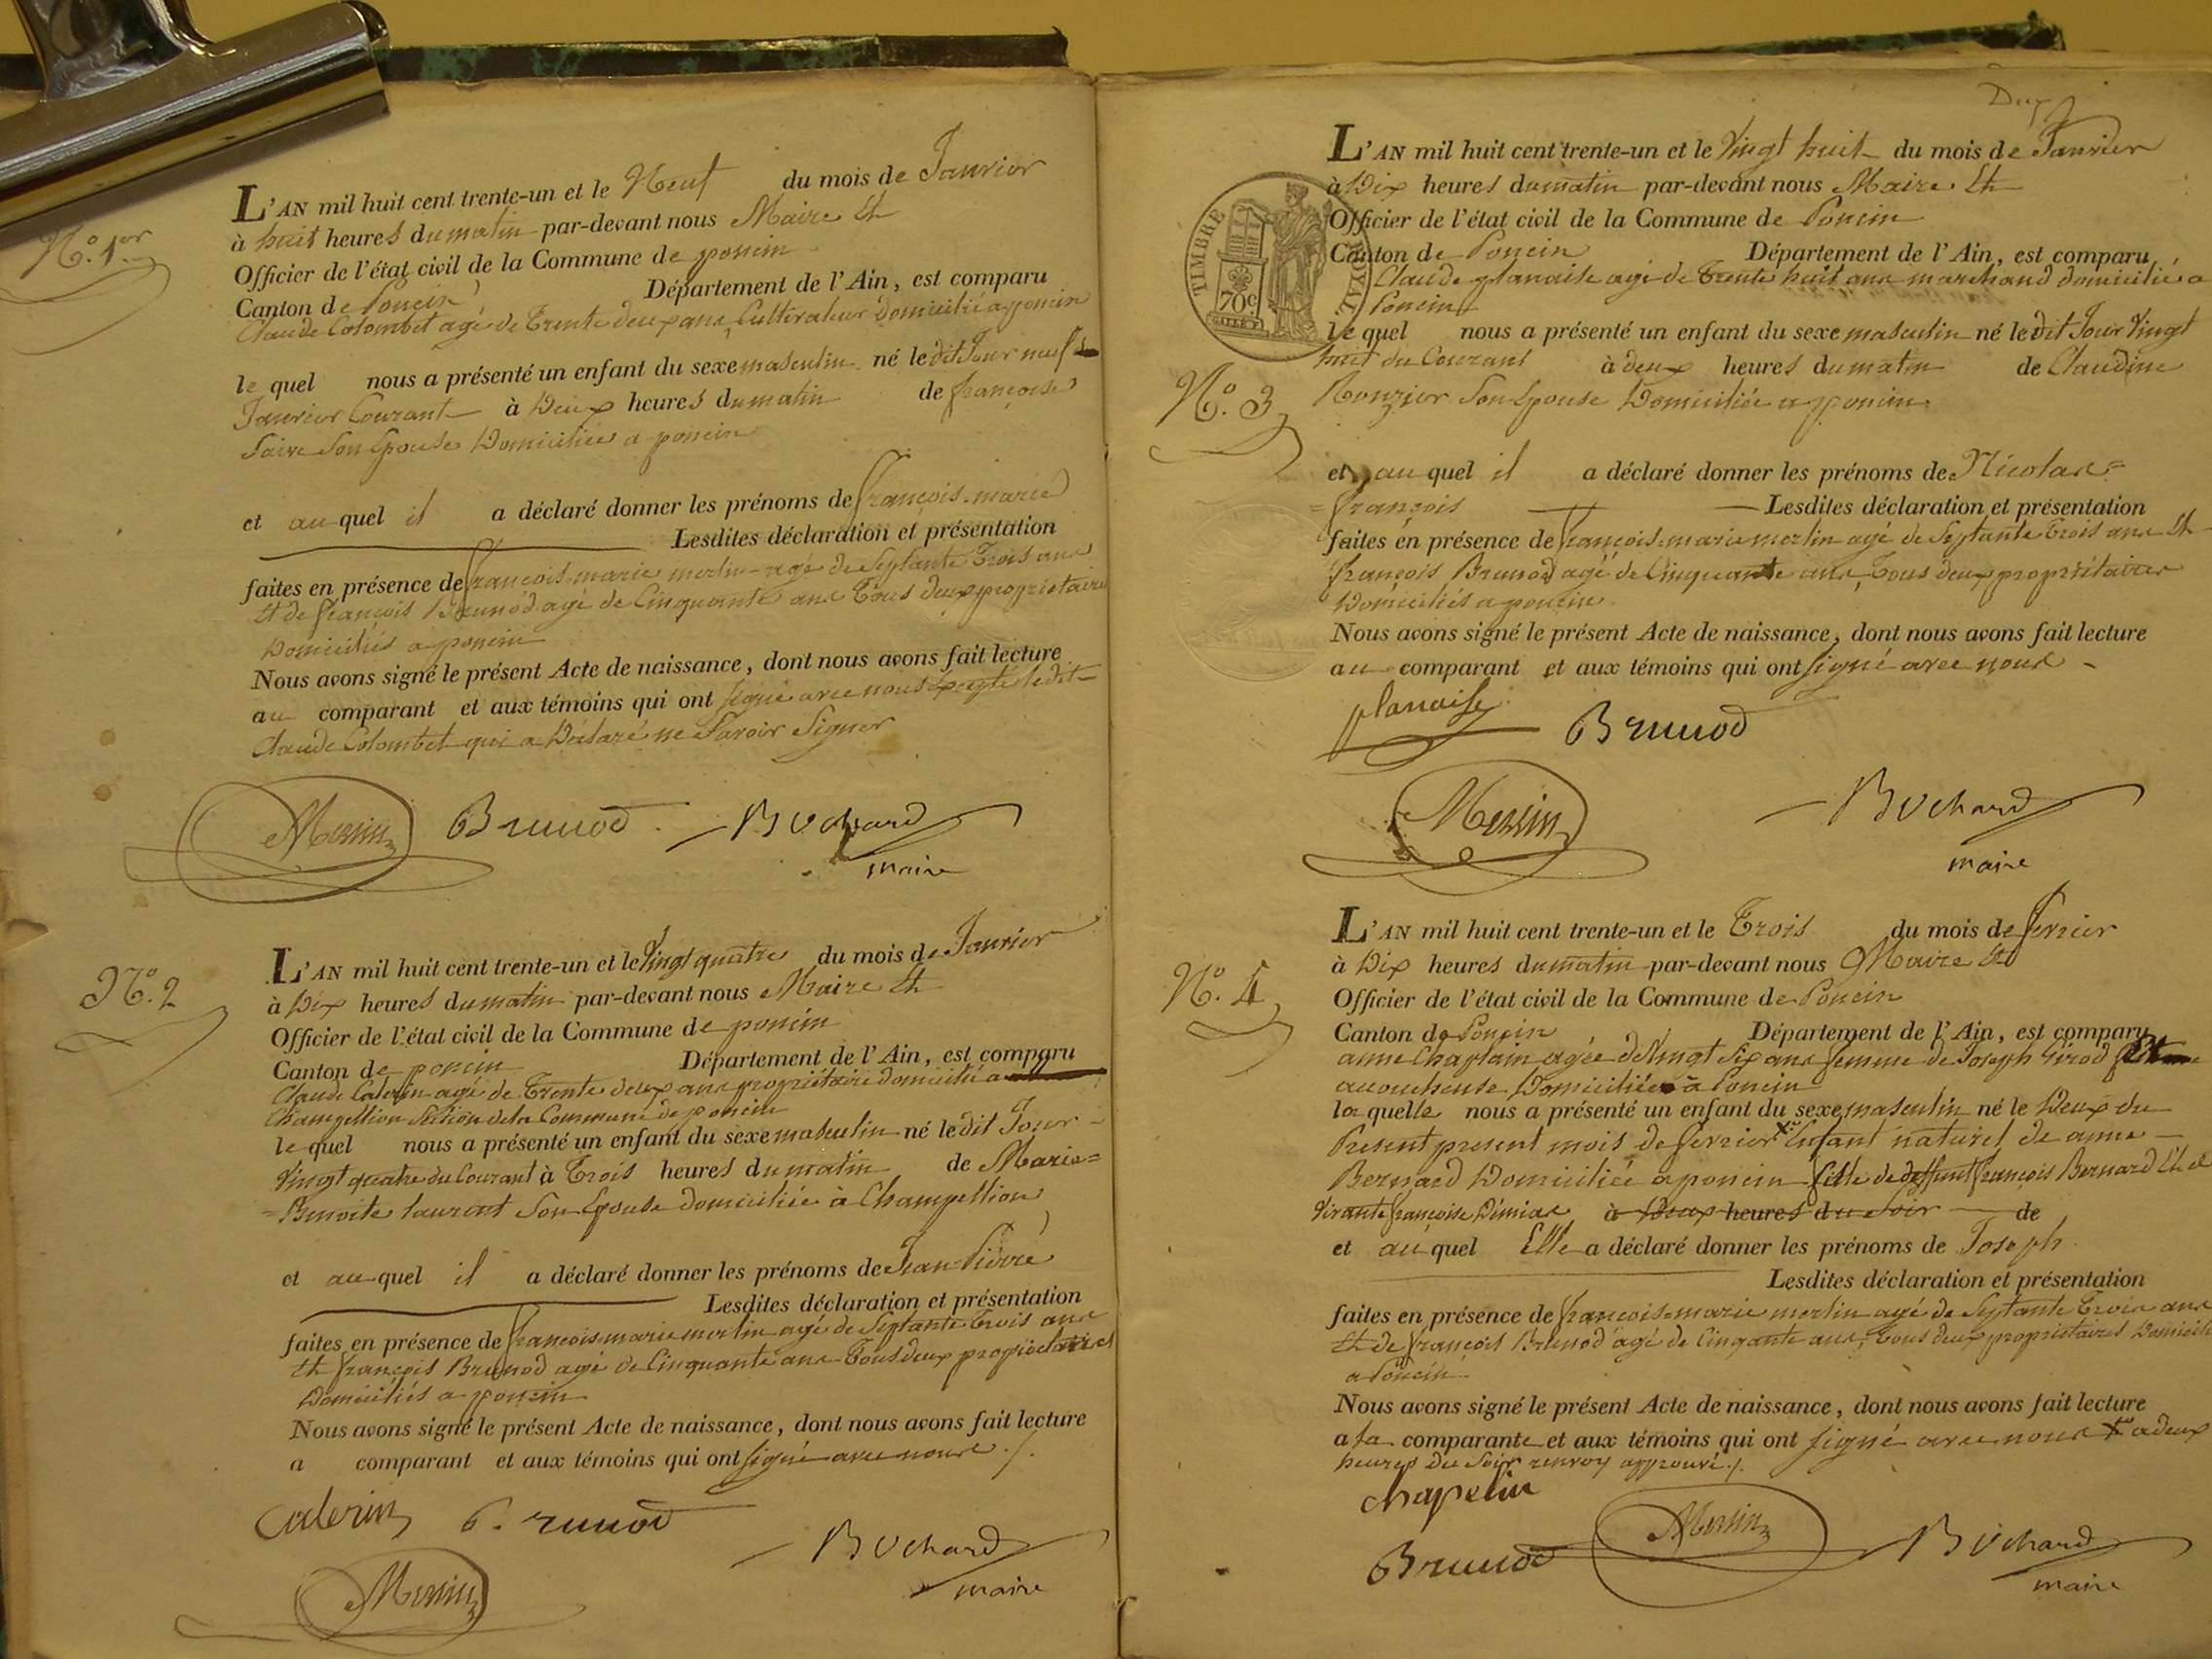 N.º 1.er
L'AN mil huit cent trente-un et le Neuf du mois de Janvier
à huit heures du matin par-devant nous Maire Et
Officier de l'état civil de la Commune de poncin
Canton de Poncin Département de l'Ain, est comparu
Claude Colombet agé de Trente deux ans Cultivateur Domicilié a poncin
le quel nous a présenté un enfant du sexe masculin né le dit Jour neuf
Janvier Courant à Deux heures du matin de françoise
Saive Son Epouse Domiciliée a poncin
et au quel il a déclaré donner les prénoms de françois-marie
Lesdites déclaration et présentation
faites en présence de françois-marie merlin agé de Septante Trois ans
Et de françois Brunod agé de Cinquante ans Tous deux propriétaires
Domiciliés a poncin
Nous avons signé le présent Acte de naissance, dont nous avons fait lecture
au comparant et aux témoins qui ont signé avec nous Excepté le dit
Claude Colombet qui a Déclaré ne Savoir Signer
Merlin Brunod Bochard
maire
N.º 2
L'AN mil huit cent trente-un et le Vingt quatre du mois de Janvier
à Dix heures du matin par-devant nous Maire Et
Officier de l'état civil de la Commune de poncin
Canton de poncin Département de l'Ain, est comparu
Claude Caterin agé de Trente deux ans propriétaire domicilié a
Champellion Section de la Commune de poncin
le quel nous a présenté un enfant du sexe masculin né le dit Jour
Vingt quatre du Courant à Trois heures du matin de Marie=
=Benoite laurent Son Epouse domiciliée à Champellion
et au quel il a déclaré donner les prénoms de Jean-Pierre
Lesdites déclaration et présentation
faites en présence de françois marie merlin agé de Septante Trois ans
Et françois Brunod agé de Cinquante ans Tous deux propriétaires
Domiciliés a poncin
Nous avons signé le présent Acte de naissance, dont nous avons fait lecture
a comparant et aux témoins qui ont signé avec nous ./.
Caterin B. runod
Bochard
maire
Merlin
Deux
L'AN mil huit cent trente-un et le Vingt huit du mois de Janvier
à Dix heures du matin par-devant nous Maire Et
Officier de l'état civil de la Commune de Poncin
Canton de Poncin Département de l'Ain, est comparu
TIMBRE ROYAL 70c
Claude planaise agé de Trente huit ans marchand domicilié a
Poncin
le quel nous a présenté un enfant du sexe masculin né le dit Jour Vingt
huit du Courant à deux heures du matin de Claudine
N.º 3
Son Epouse Domiciliée a poncin
et au quel il a déclaré donner les prénoms de Nicolas=
=françois Lesdites déclaration et présentation
faites en présence de françois-marie merlin agé de Septante Trois ans Et
françois Brunod agé de Cinquante ans Tous deux propriétaires
Domiciliés a poncin
Nous avons signé le présent Acte de naissance, dont nous avons fait lecture
au comparant et aux témoins qui ont signé avec nous
planaise Brunod
Merlin Bochard
maire
N.º 4
L'AN mil huit cent trente-un et le Trois du mois de fevrier
à Dix heures du matin par-devant nous Maire Et
Officier de l'état civil de la Commune de Poncin
Canton de Poncin Département de l'Ain, est comparu
anne Chaplain agée de Vingt Six ans femme de Joseph Girod
acoucheuse Domiciliée à Poncin
la quelle nous a présenté un enfant du sexe masculin né le Deux du
Present present mois de fevrier Enfant naturel de anne
Bernard Domiciliée a poncin fille de deffunt françois Bernard Et de
Vivante françoise à Deux heures du Soir de
et au quel Elle a déclaré donner les prénoms de Joseph
Lesdites déclaration et présentation
faites en présence de françois-marie merlin agé de Septante Trois ans
Et de françois Brunod agé de Cinqante ans, Tous deux propriétaires Domicil
a Poncin
Nous avons signé le présent Acte de naissance, dont nous avons fait lecture
a la comparante et aux témoins qui ont signé avec nous a deux
heures du Soir renvoy approuvé ./.
chapelin
Merlin
Brunod Bochard
maire